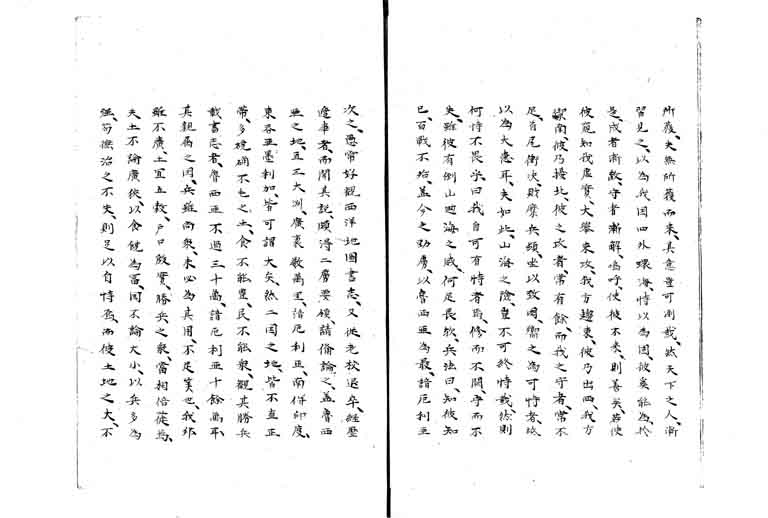 所獲矣無所獲而来其意豈可測哉然天下之人漸
習見之以為我国四外環海恃以為固彼奚能為於
是戍者漸敝守者漸解嗚呼使彼不来則善矣若使
彼窺知我虚實大挙来攻我方趨東彼乃出西我方
禦南彼乃擾北彼之攻者常有餘而我之守者常不
足首尾衝決財糜兵頓坐以致困嚮之為可恃者竝
以為大患耳夫如此山海之險豈不可終恃哉然則
何恃不畏乎曰我自可有恃者焉修而不闘守而不
失雖彼有倒山廻海之威何足畏歟兵法曰知彼知
己百戦不殆蓋今之勁虜以魯西亜為最諳厄利亜
次之愚常好観西洋地圖書志又従老校退卒経歴
邊事者而聞其説頗得二虜要領請備論之蓋魯西
亜之地亙三大洲廣袤数萬里諳厄利亜南併印度
東呑亜墨利加皆可謂大矣然二国之地皆不直正
帯多硗确不毛之土食不能豊民不能衆観其勝兵
載書志者魯西亜不過三十萬諳厄利亜十餘萬耳
其親属之国兵雖尚衆未必為其用不足算也我邦
雖不廣土宜五穀戸口殷實勝兵之衆當相倍蓰焉
夫土不論廣狭以食饒為富国不論大小以兵多為
強苟撫治之不失則足以自恃焉而彼土地之大不